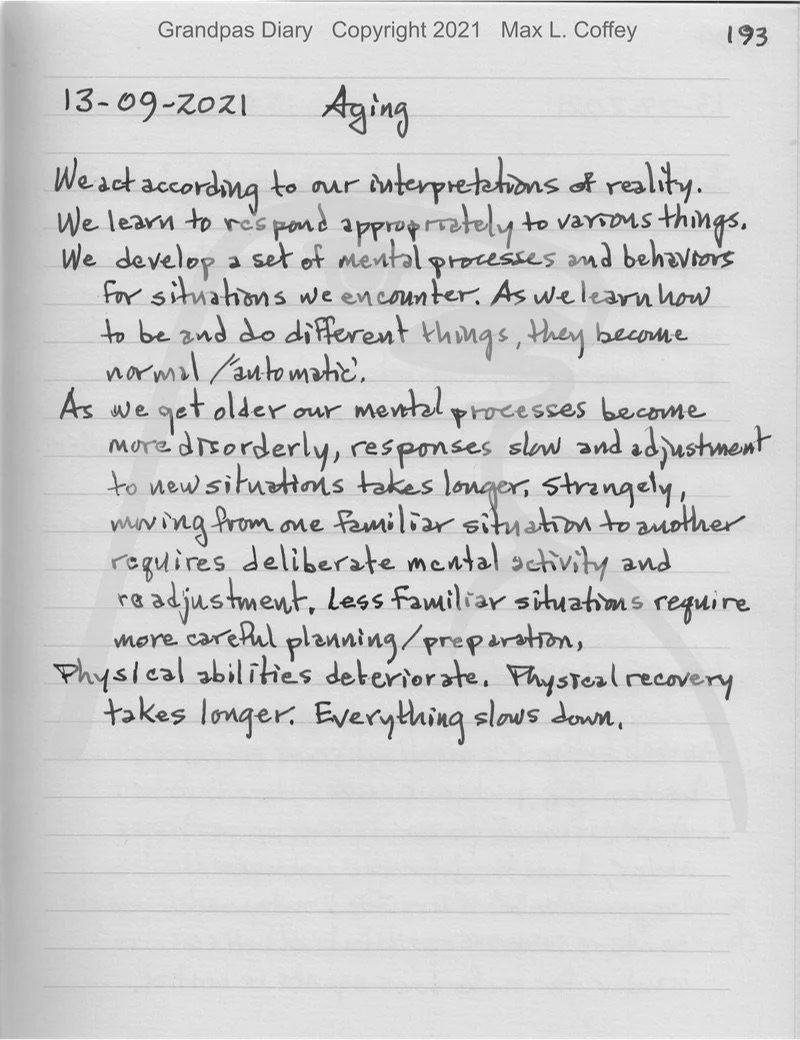 Grandpas Diary Copyright 2021 Max L. Coffey
193
13-09-2021 Aging
We act according to our interpretations of reality.
We learn to respond appropriately to various things.
We develop a set of mental processes and behaviors
for situations we encounter. As we learn how
to be and do different things, they become
normal/'automatic'.
As we get older our mental processes become
more disorderly, responses slow and adjustment
to new situations takes longer. Strangely,
moving from one familiar situation to another
requires deliberate mental activity and
readjustment. Less familiar situations require
more careful planning/preparation.
Physical abilities deteriorate. Physical recovery
takes longer. Everything slows down.